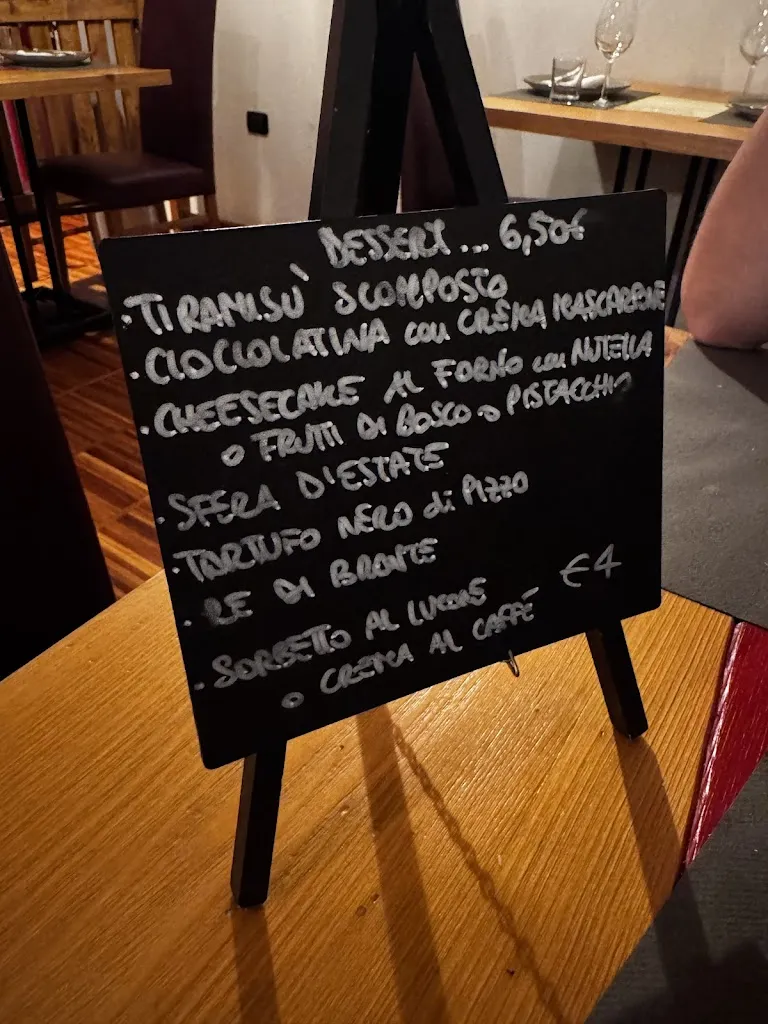 DESSERT ... 6,50€
• TIRAMISÙ SCOMPOSTO
• CIOCCOLATINA con CREMA MASCARPONE
• CHEESECAKE AL FORNO con NUTELLA
o FRUTTI DI BOSCO o PISTACCHIO
• SFERA D'ESTATE
• TARTUFO NERO di PIZZO
• RE DI BRONTE
€4
• SORBETTO AL
o CREMA AL CAFFÉ